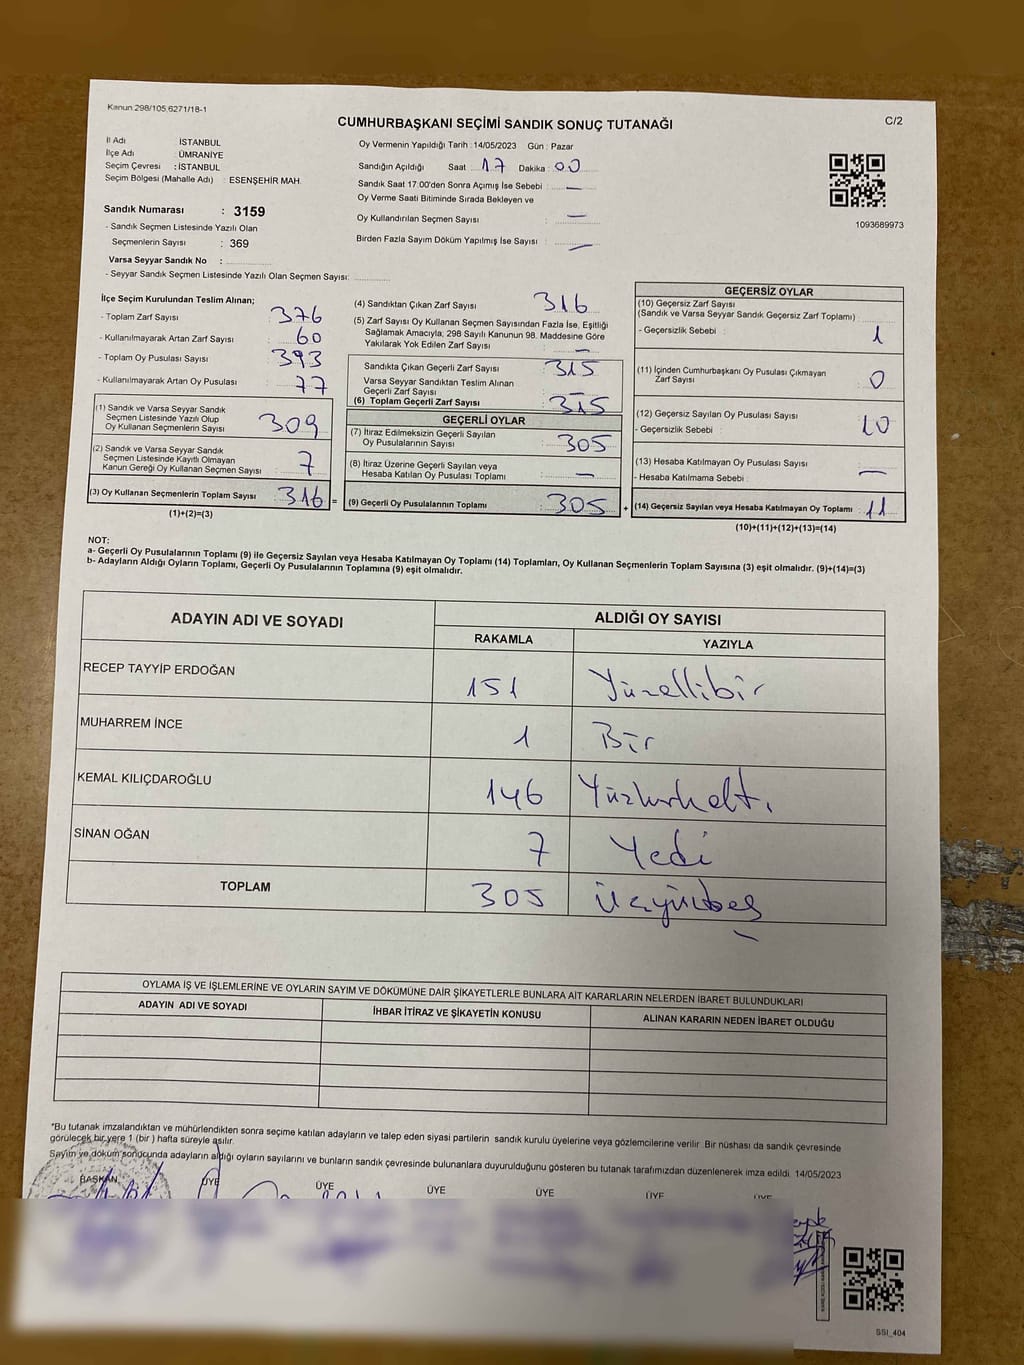 Kanun 298/105,6271/18-1
C/2
CUMHURBAŞKANI SEÇİMİ SANDIK SONUÇ TUTANAĞI
İl Adı : İSTANBUL
İlçe Adı : ÜMRANİYE
Seçim Çevresi : İSTANBUL
Seçim Bölgesi (Mahalle Adı) : ESENŞEHİR MAH.
Sandık Numarası : 3159
- Sandık Seçmen Listesinde Yazılı Olan
Seçmenlerin Sayısı : 369
Varsa Seyyar Sandık No :
- Seyyar Sandık Seçmen Listesinde Yazılı Olan Seçmen Sayısı:
Oy Vermenin Yapıldığı Tarih : 14/05/2023 Gün : Pazar
Sandığın Açıldığı Saat : 17 Dakika : 00
Sandık Saat 17:00'den Sonra Açımış İse Sebebi : —
Oy Verme Saati Bitiminde Sırada Bekleyen ve
Oy Kullandırılan Seçmen Sayısı : —
Birden Fazla Sayım Döküm Yapılmış İse Sayısı : —
1093689973
İlçe Seçim Kurulundan Teslim Alınan;
- Toplam Zarf Sayısı : 376
- Kullanılmayarak Artan Zarf Sayısı : 60
- Toplam Oy Pusulası Sayısı : 393
- Kullanılmayarak Artan Oy Pusulası : 77
(1) Sandık ve Varsa Seyyar Sandık
Seçmen Listesinde Yazılı Olup
Oy Kullanan Seçmenlerin Sayısı : 309
(2) Sandık ve Varsa Seyyar Sandık
Seçmen Listesinde Kayıtlı Olmayan
Kanun Gereği Oy Kullanan Seçmen Sayısı : 7
(3) Oy Kullanan Seçmenlerin Toplam Sayısı : 316 =
(1)+(2)=(3)
(4) Sandıktan Çıkan Zarf Sayısı : 316
(5) Zarf Sayısı Oy Kullanan Seçmen Sayısından Fazla İse, Eşitliği
Sağlamak Amacıyla, 298 Sayılı Kanunun 98. Maddesine Göre
Yakılarak Yok Edilen Zarf Sayısı : —
Sandıkta Çıkan Geçerli Zarf Sayısı : 315
Varsa Seyyar Sandıktan Teslim Alınan
Geçerli Zarf Sayısı :
(6) Toplam Geçerli Zarf Sayısı : 315
GEÇERLİ OYLAR
(7) İtiraz Edilmeksizin Geçerli Sayılan
Oy Pusulalarının Sayısı : 305
(8) İtiraz Üzerine Geçerli Sayılan veya
Hesaba Katılan Oy Pusulası Toplamı : —
(9) Geçerli Oy Pusulalarının Toplamı : 305 +
GEÇERSİZ OYLAR
(10) Geçersiz Zarf Sayısı
(Sandık ve Varsa Seyyar Sandık Geçersiz Zarf Toplamı) :
- Geçersizlik Sebebi : 1
(11) İçinden Cumhurbaşkanı Oy Pusulası Çıkmayan
Zarf Sayısı : 0
(12) Geçersiz Sayılan Oy Pusulası Sayısı : 10
- Geçersizlik Sebebi :
(13) Hesaba Katılmayan Oy Pusulası Sayısı : —
- Hesaba Katılmama Sebebi :
(14) Geçersiz Sayılan veya Hesaba Katılmayan Oy Toplamı : 11
(10)+(11)+(12)+(13)=(14)
NOT:
a- Geçerli Oy Pusulalarının Toplamı (9) ile Geçersiz Sayılan veya Hesaba Katılmayan Oy Toplamı (14) Toplamları, Oy Kullanan Seçmenlerin Toplam Sayısına (3) eşit olmalıdır. (9)+(14)=(3)
b- Adayların Aldığı Oyların Toplamı, Geçerli Oy Pusulalarının Toplamına (9) eşit olmalıdır.
ADAYIN ADI VE SOYADI
ALDIĞI OY SAYISI
RAKAMLA YAZIYLA
RECEP TAYYİP ERDOĞAN 151 Yüzellibir
MUHARREM İNCE 1 Bir
KEMAL KILIÇDAROĞLU 146 Yüzkırkaltı
SİNAN OĞAN 7 Yedi
TOPLAM 305 üçyüzbeş
OYLAMA İŞ VE İŞLEMLERİNE VE OYLARIN SAYIM VE DÖKÜMÜNE DAİR ŞİKAYETLERLE BUNLARA AİT KARARLARIN NELERDEN İBARET BULUNDUKLARI
ADAYIN ADI VE SOYADI İHBAR İTİRAZ VE ŞİKAYETİN KONUSU ALINAN KARARIN NEDEN İBARET OLDUĞU
*Bu tutanak imzalandıktan ve mühürlendikten sonra seçime katılan adayların ve talep eden siyasi partilerin sandık kurulu üyelerine veya gözlemcilerine verilir. Bir nüshası da sandık çevresinde
görülecek bir yere 1 (bir ) hafta süreyle asılır.
Sayım ve döküm sonucunda adayların aldığı oyların sayılarını ve bunların sandık çevresinde bulunanlara duyurulduğunu gösteren bu tutanak tarafımızdan düzenlenerek imza edildi. 14/05/2023
BAŞKAN ÜYE ÜYE ÜYE ÜYE ÜYE ÜYE
SSI_404